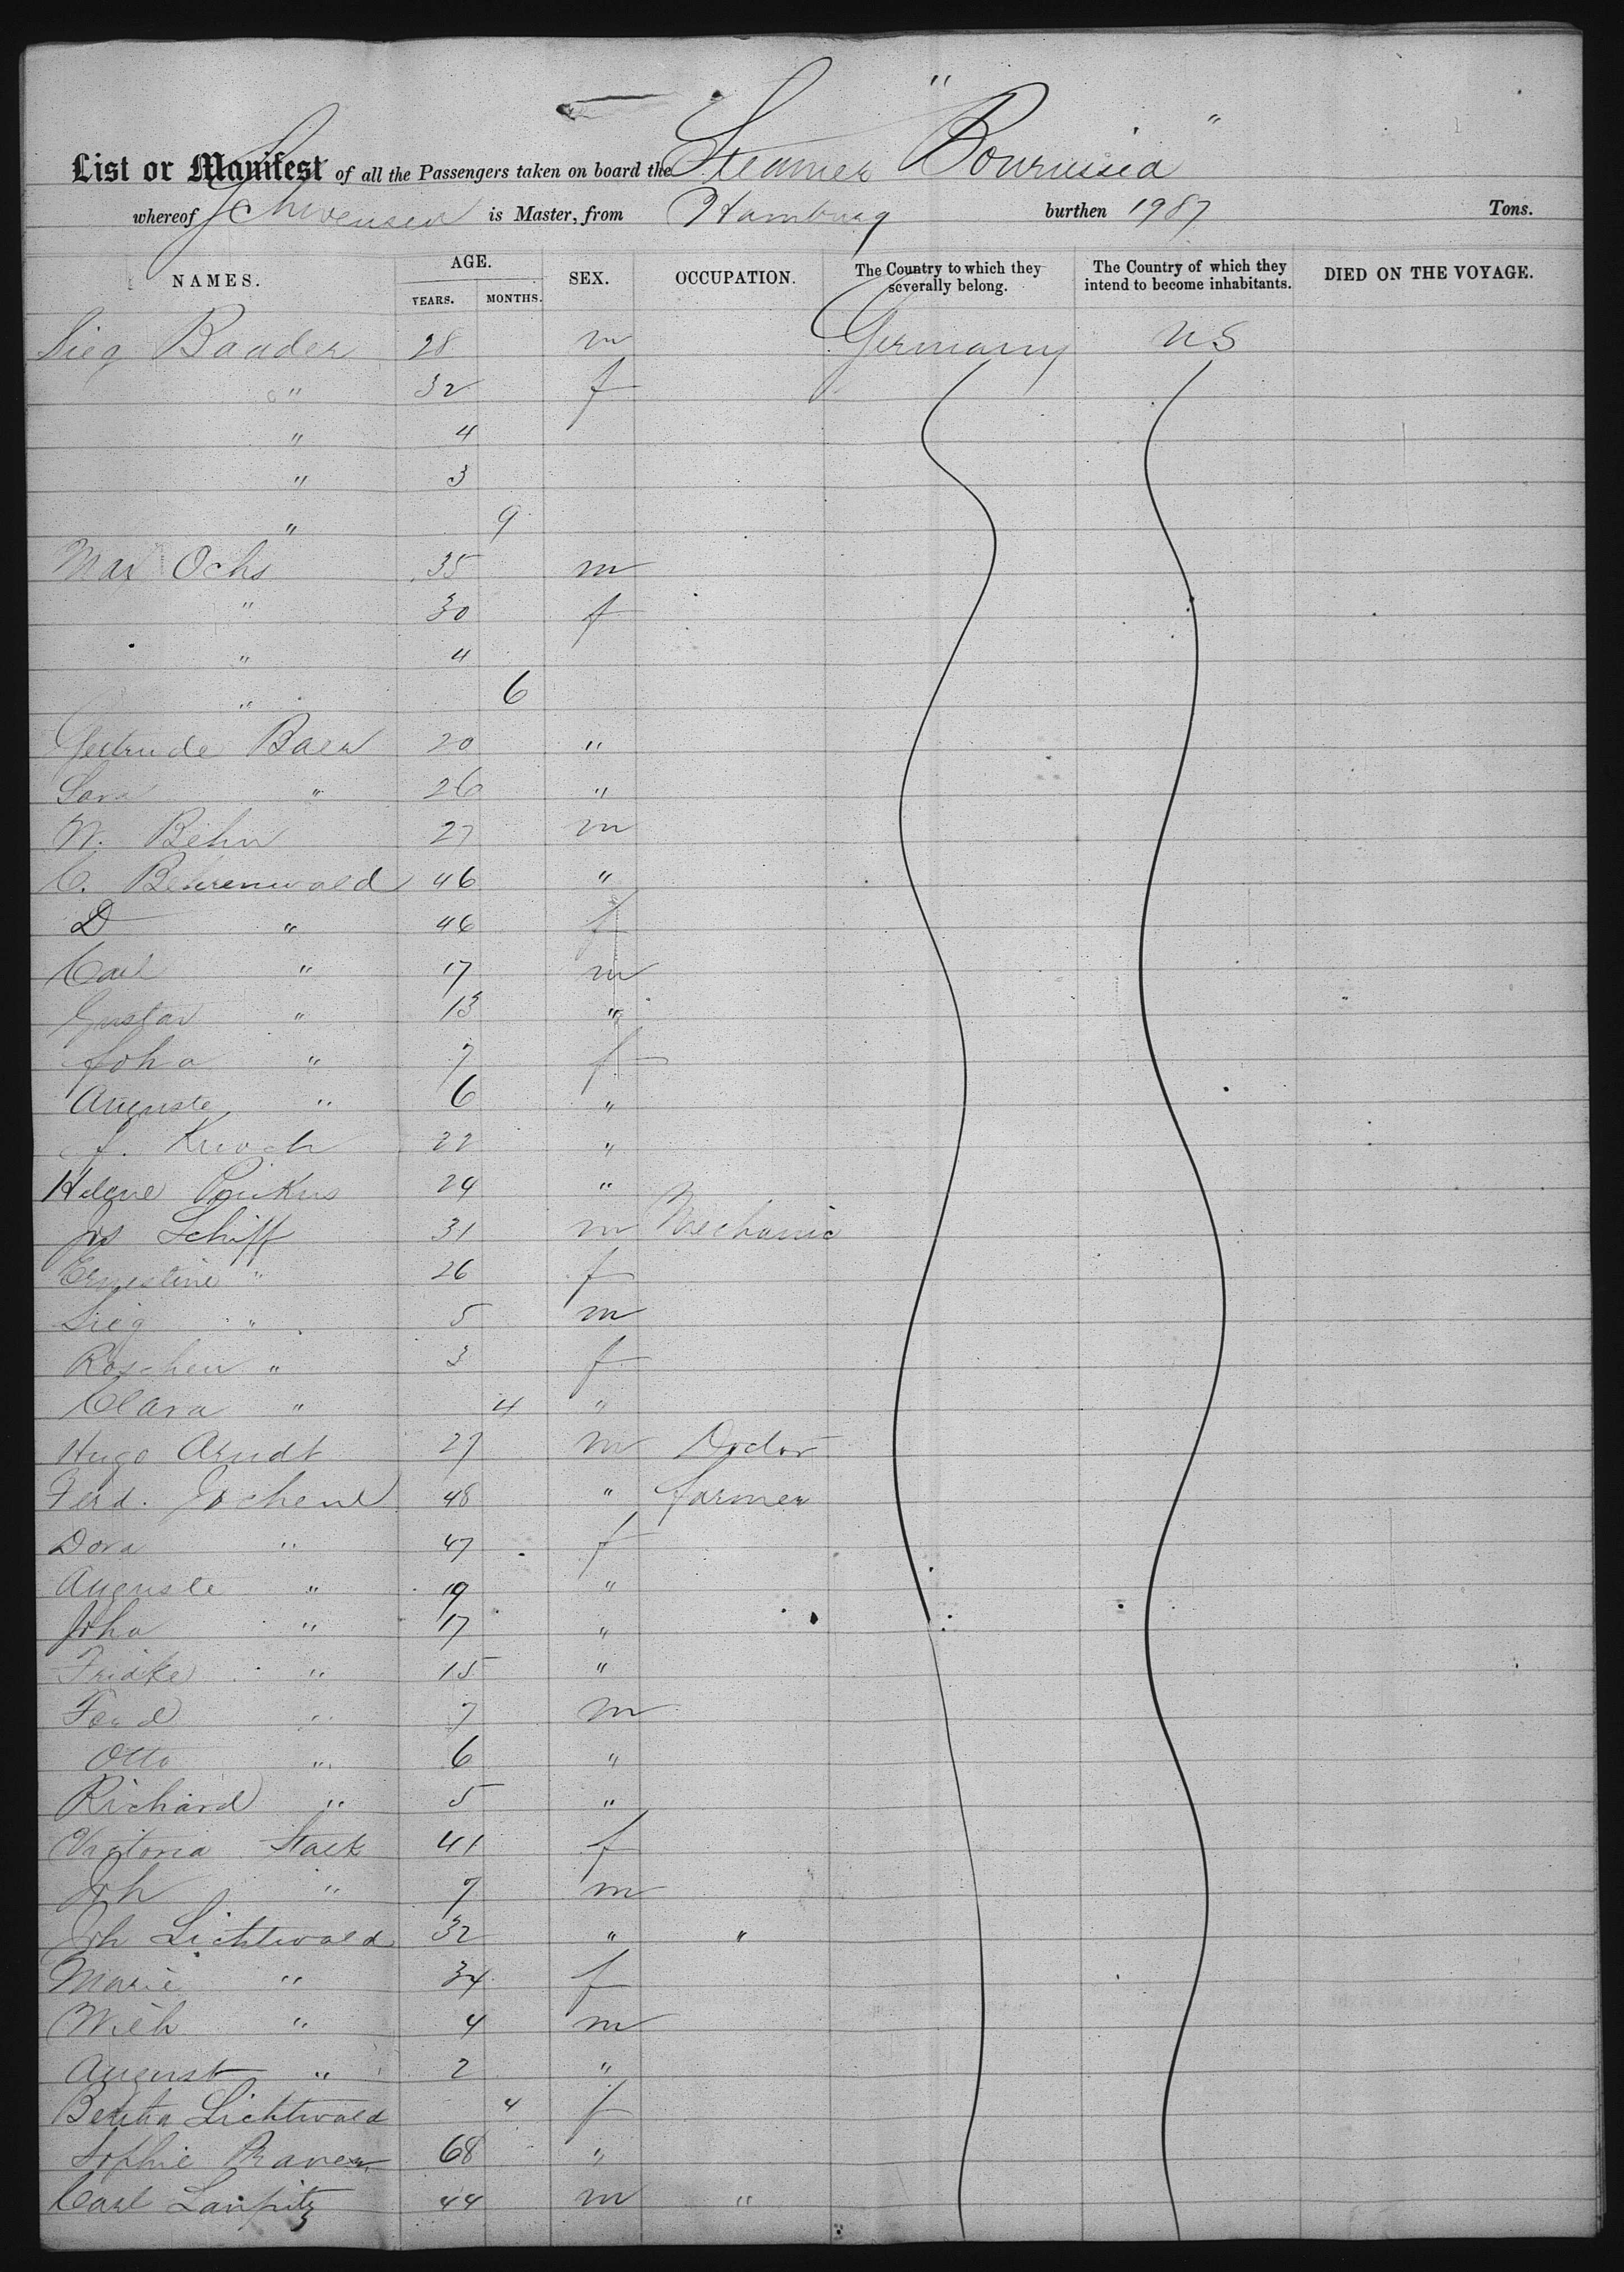 List or Manifest of all the Passengers taken on board the Steamer "Borrussia"
whereof is Master, from Hamburg burthen 1987 Tons.
NAMES. AGE. YEARS. MONTHS. SEX. OCCUPATION. The Country to which they severally belong. The Country of which they intend to become inhabitants. DIED ON THE VOYAGE.
Sieg Baader 28 m Germany US
" 32 f
" 4
" 3
" 9
Max Ochs 35 m
" 30 f
" 4
" 6
Gertrude Baer 20 "
Sara " 26 "
W. Behn 27 m
C. Behrenwald 46 "
D " 46 f
Carl " 17 m
Gustav " 13 "
Joha " 7 f
Auguste " 6 "
22 "
Helene Pinkus 24 "
Jos Schiff 31 m Mechanic
Ernestine " 26 f
Sieg " 5 m
Roschen " 3 f
Clara " 4 "
Hugo Arndt 27 m Doctor
Ferd. Jochene 48 " farmer
Dora " 47 f
Auguste " 19 "
Joha " 17 "
Fridke " 15 "
Ferd " 7 m
Otto " 6 "
Richard " 5 "
Victoria Stack 41 f
Joh " 7 m
Joh Lichtwald 32 " "
Marie " 34 f
Wilh " 4 m
August " 2 "
Bertha Lichtwald 4 f
Sophie 68 "
Carl 44 m "